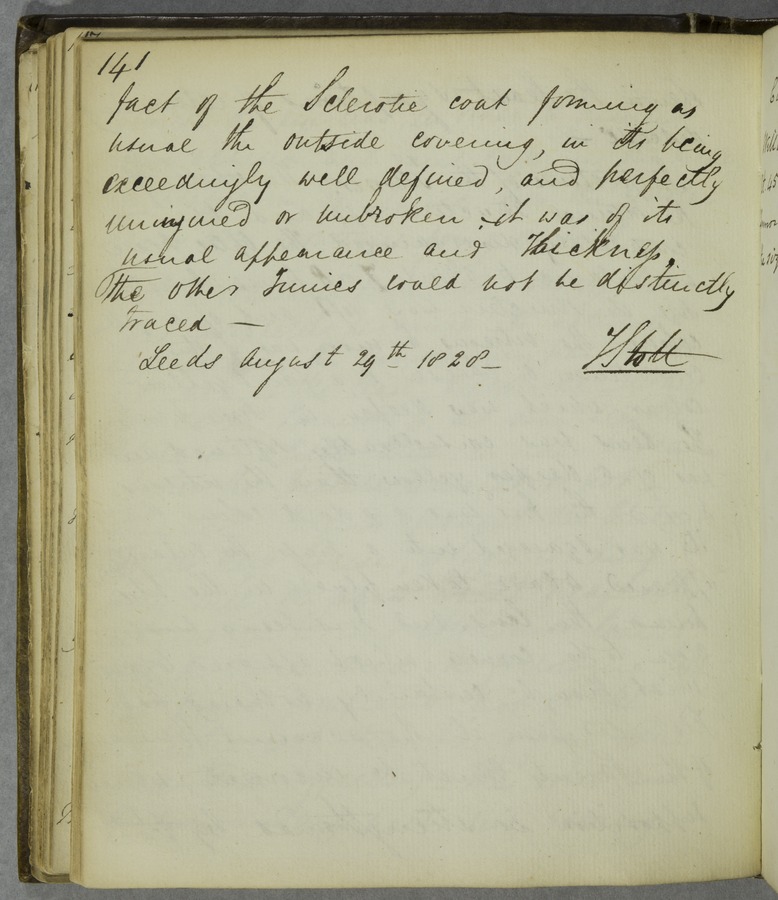 141
fact of the Sclerotic coat forming as
usual the outside covering, in its being
exceedingly well defined, and perfectly
uninjured or unbroken; it was of its
usual appearance and thickness.
The other Tunics could not be distinctly
traced —
Leeds August 29th 1828—